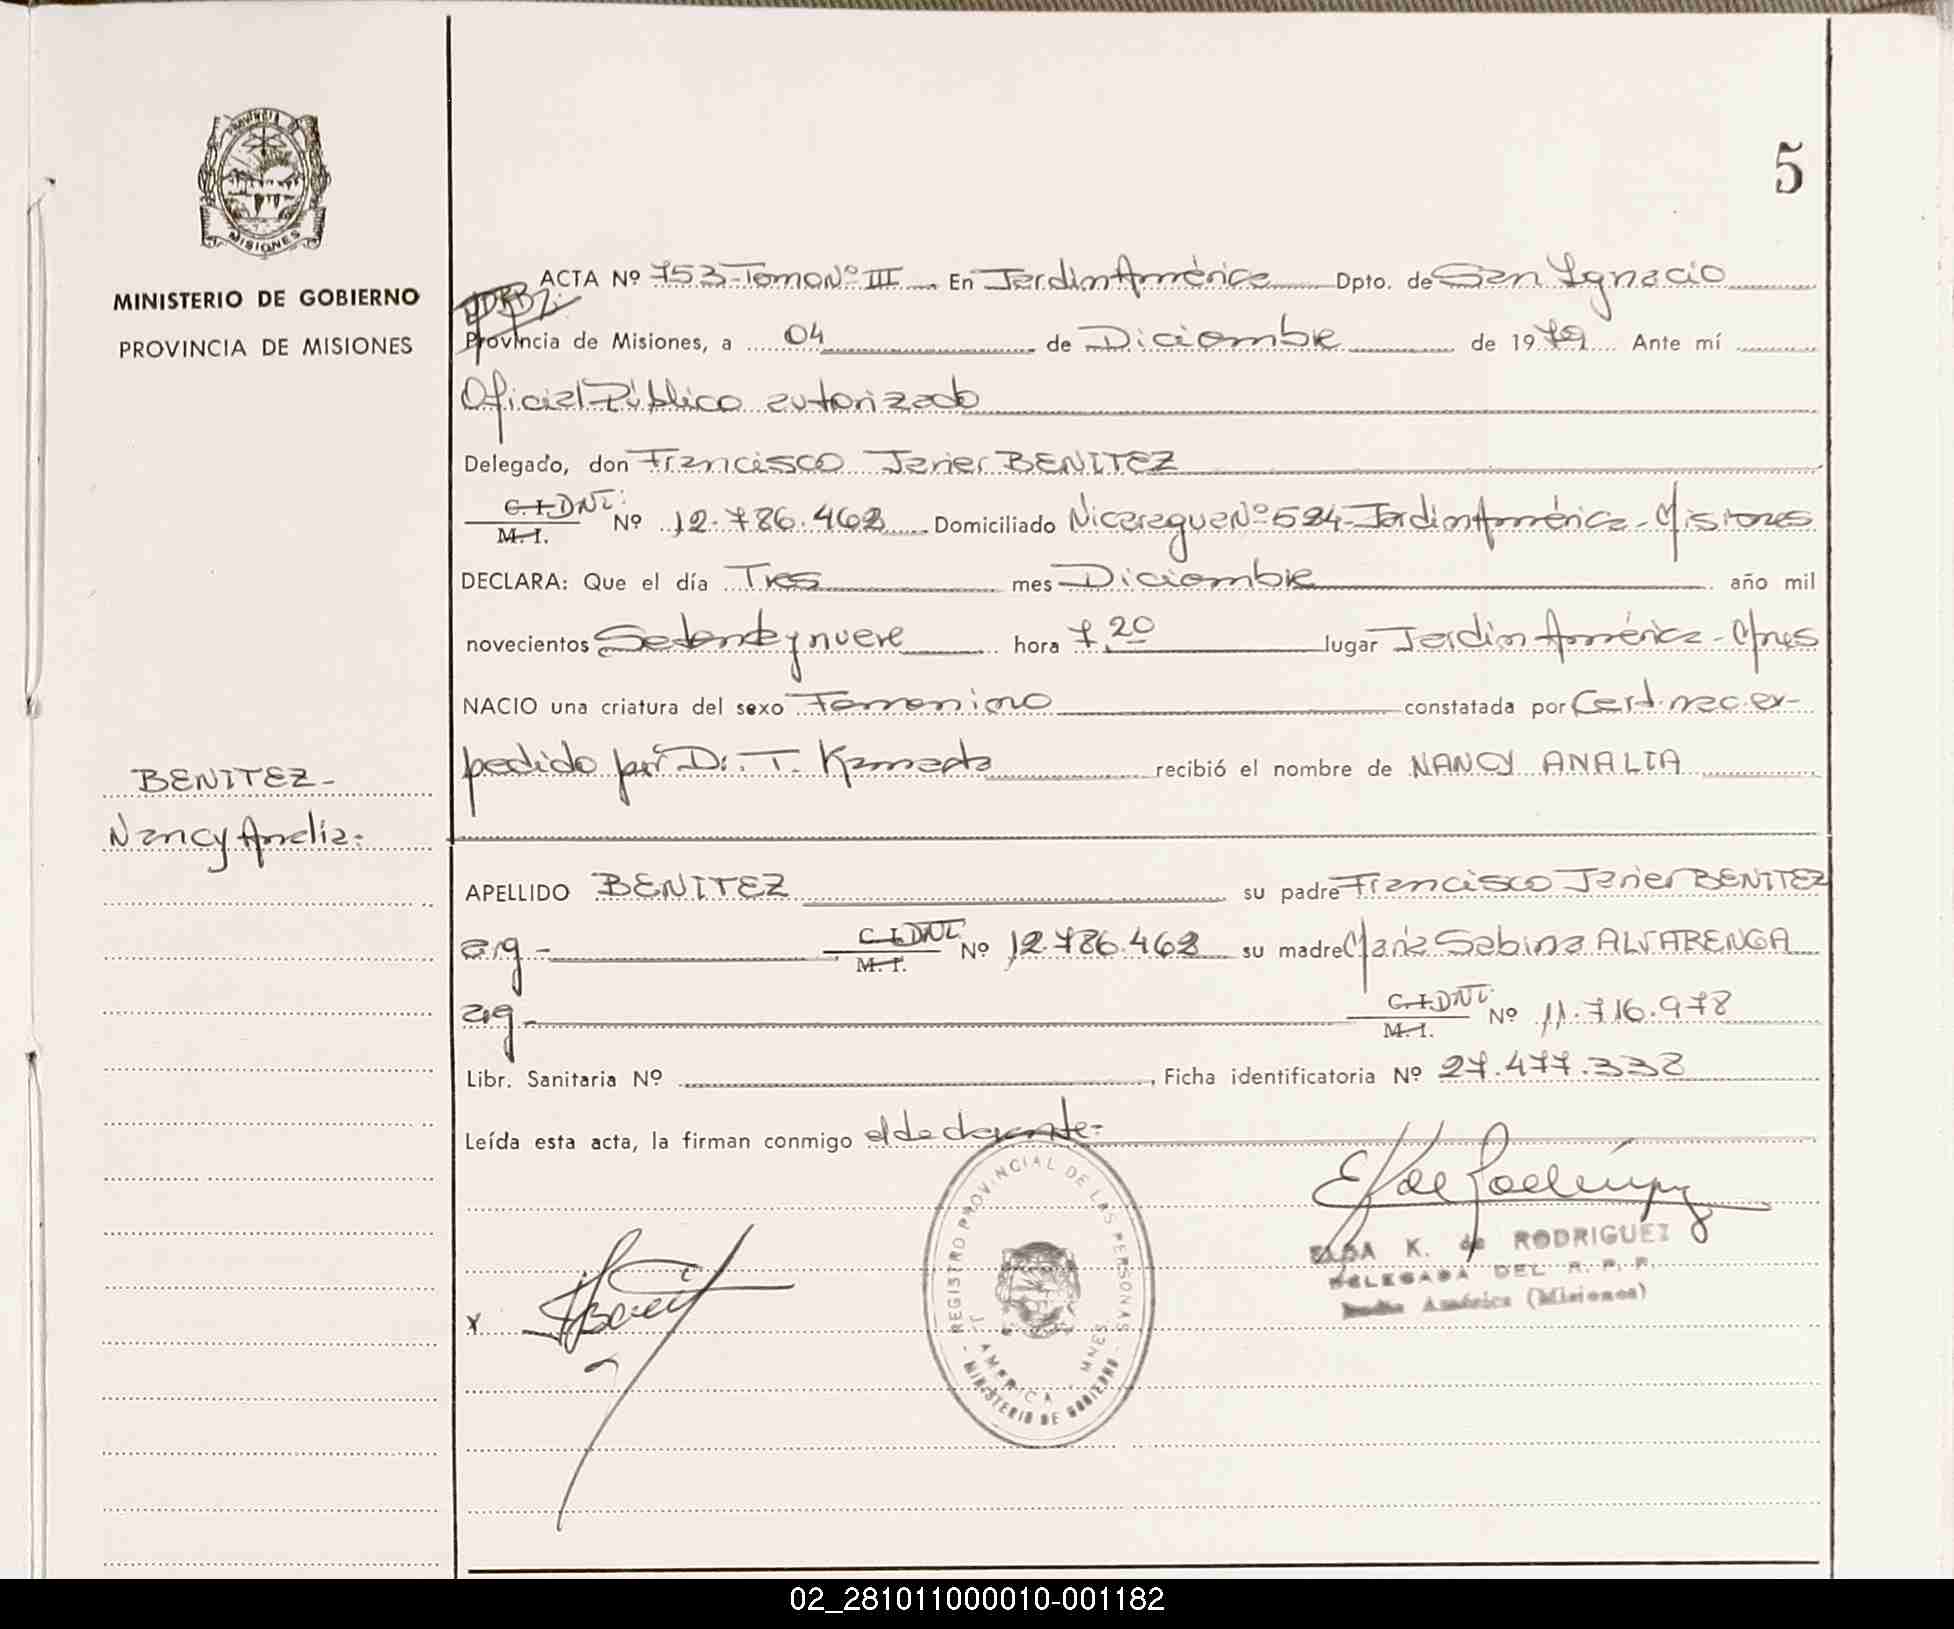 PROVINCIA DE
MISIONES
MINISTERIO DE GOBIERNO
PROVINCIA DE MISIONES
BENITEZ-
Nancy Analia:
5
ACTA Nº 753-Tomo Nº III En Jardin América Dpto. de San Ignacio
Provincia de Misiones, a 04 de Diciembre de 1979 Ante mí
Oficial Público autorizado
Delegado, don Francisco Javier BENITEZ
C.I. DNI: M.I. Nº 12.786.462 Domiciliado Nicaragua Nº 524-Jardin América-Misiones
DECLARA: Que el día Tres mes Diciembre año mil
novecientos Setenta y nueve hora 7,20 lugar Jardin América-Mnes
NACIO una criatura del sexo Femenino constatada por Cert. nac. ex-
pedido por Dr. T. Kameda recibió el nombre de NANCY ANALIA
APELLIDO BENITEZ su padre Francisco Javier BENITEZ
arg - C.I. DNI. M.I. Nº 12.786.462 su madre Maria Sabina ALVARENGA
arg - C.I. DNI. M.I. Nº 11.716.978
Libr. Sanitaria Nº , Ficha identificatoria Nº 27.477.332
Leída esta acta, la firman conmigo el declarante:
REGISTRO PROVINCIAL DE LAS PERSONAS
J. AMERICA - MNES
- MINISTERIO DE GOBIERNO -
x
ELDA K. de RODRIGUEZ
DELEGADA DEL R. P. P.
Jardin América (Misiones)
02_281011000010-001182